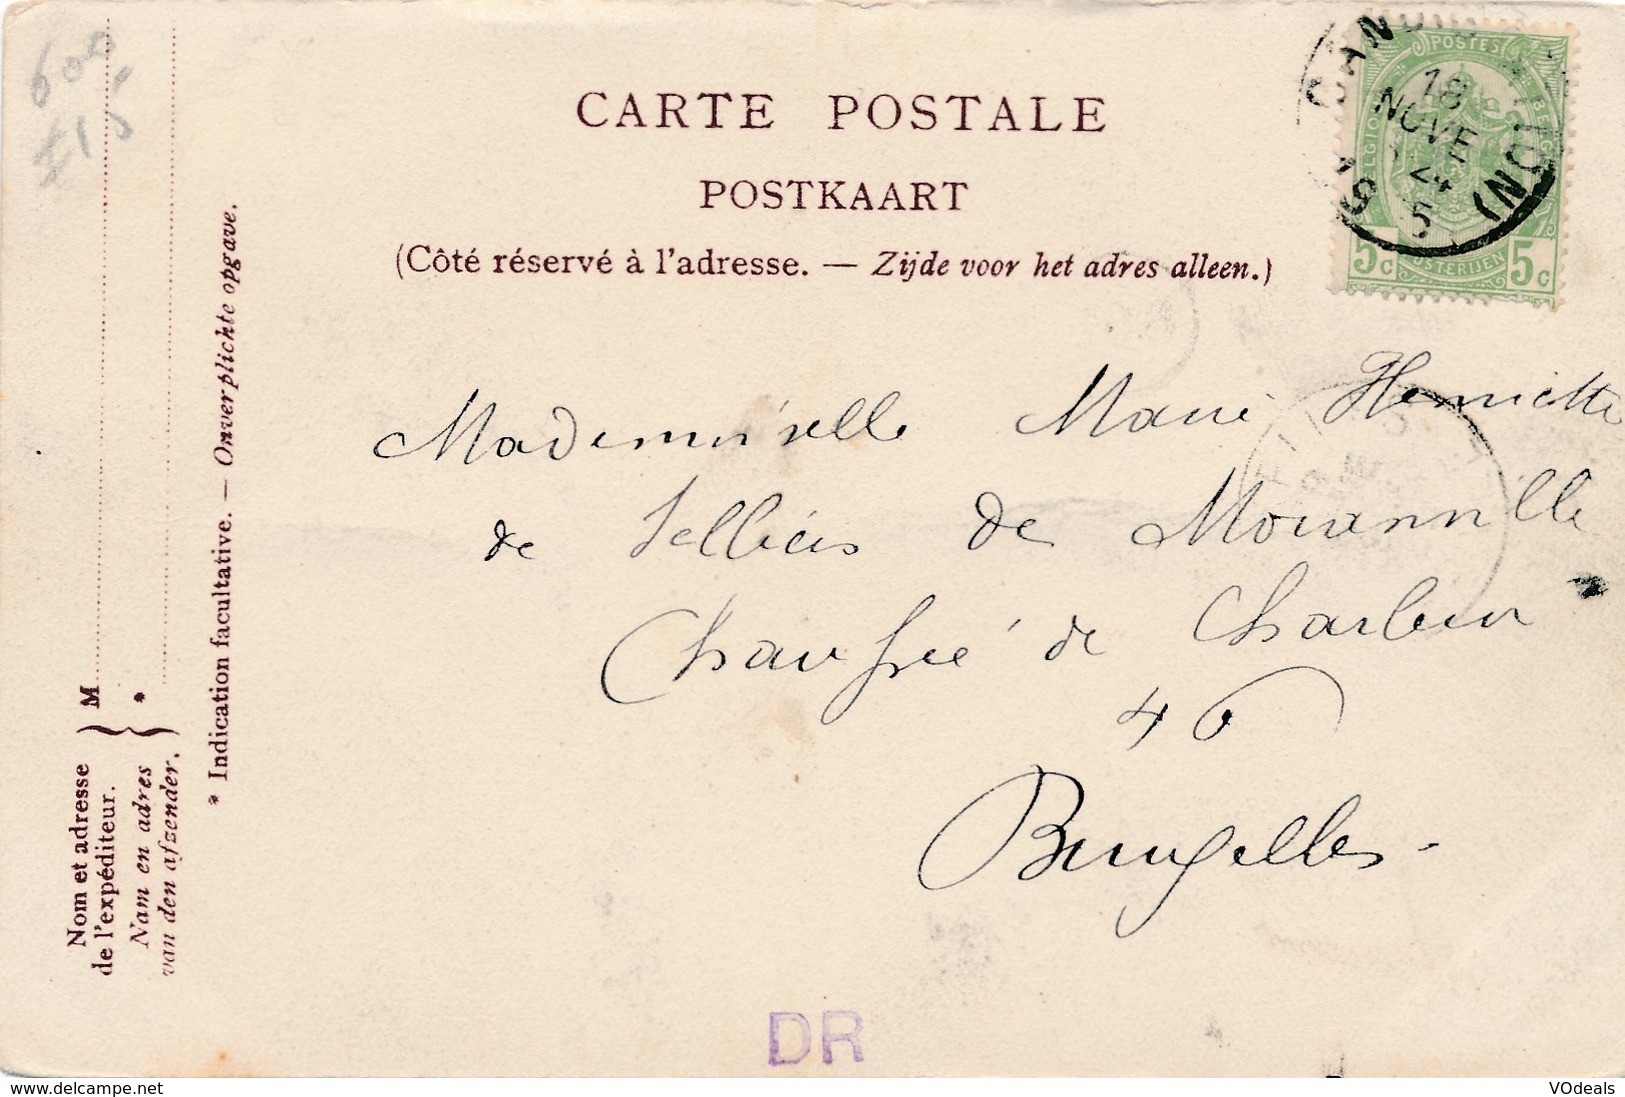 CARTE POSTALE
POSTKAART
(Côté réservé à l'adresse. — Zijde voor het adres alleen.)
Mademoiselle Marie Henriette
de Selliers de Moranville
Chaussée de Charleroi
46
Bruxelles -
DR
Nom et adresse
de l'expéditeur.
Nam en adres
van den afzender.
M
*
* Indication facultative. — Onverplichte opgave.
POSTES
18
NOVE
5c
5c
www.delcampe.net
VOdeals